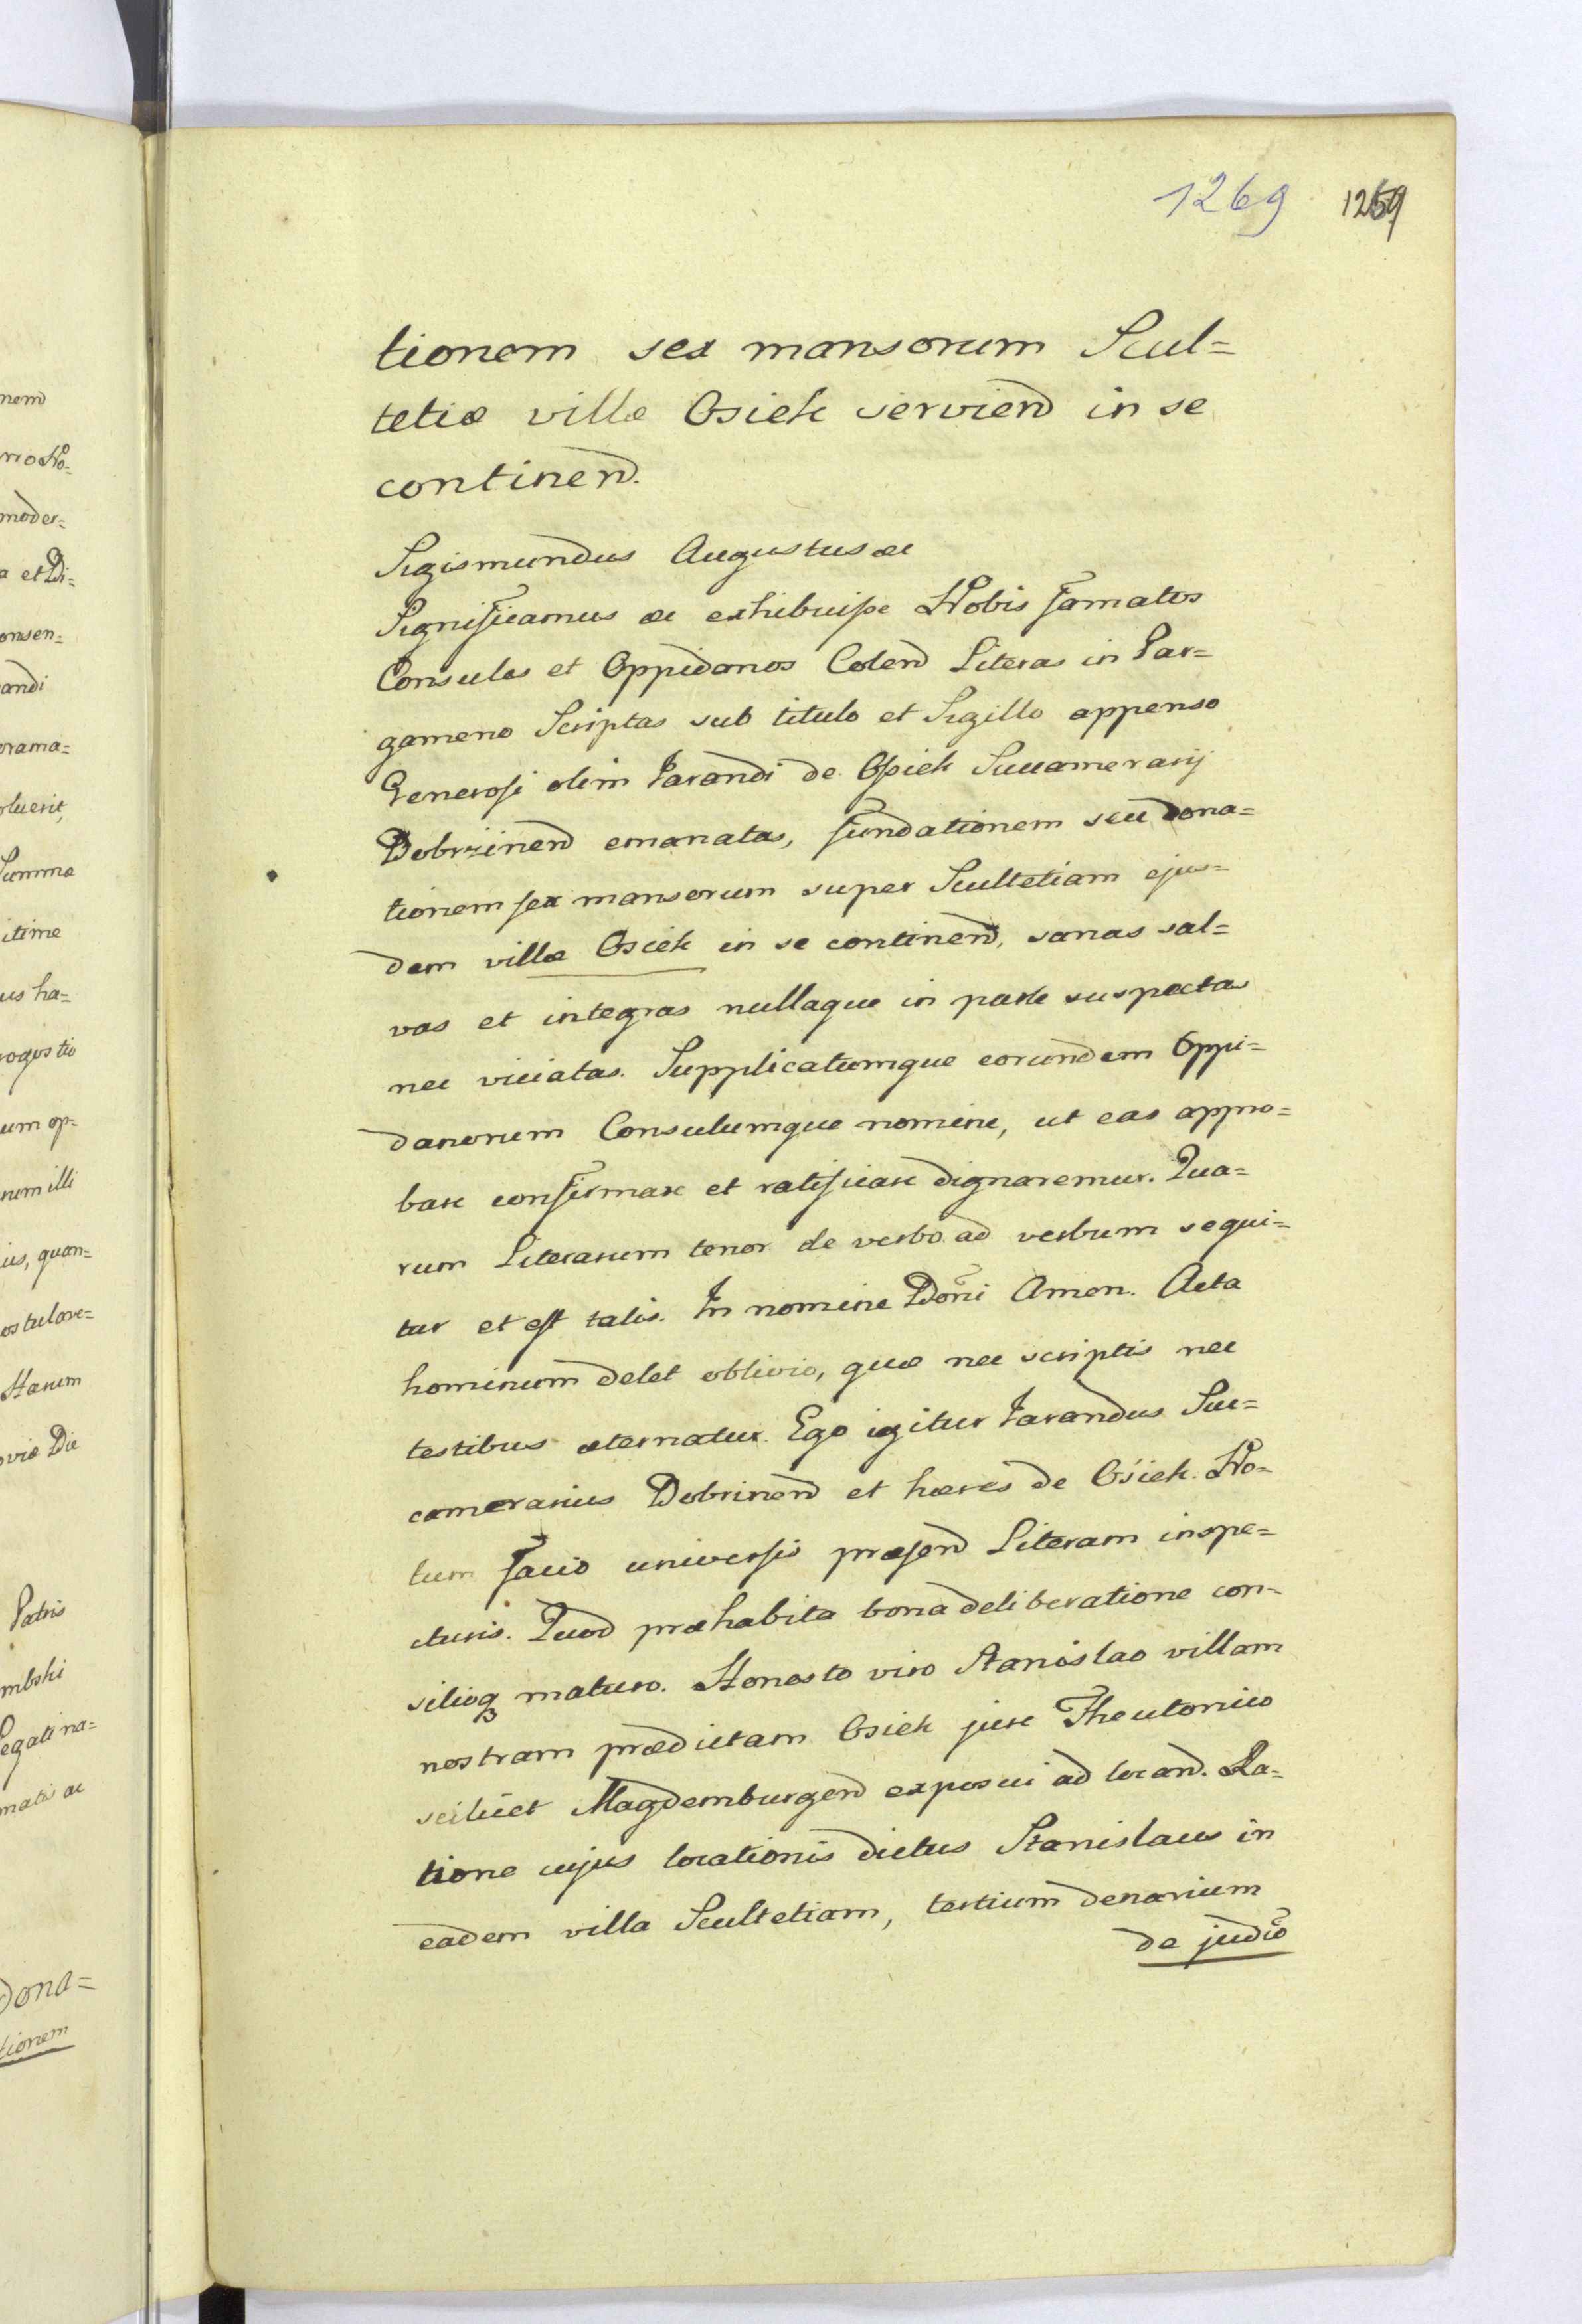 1269 1269
tionem sex mansorum Scul=
tetiæ villæ Osiek serviend in se
continend.
Sigismundus Augustus ac
Significamus ac exhibuisse Nobis Famatos
Consules et Oppidanos Colend Literas in Par=
gameno Scriptas sub titulo et Sigillo appenso
Generosi olim Jarandi de Osiek Succamerarij
Dobrzinend emanatas, fundationem seu dona=
tionem sex mansorum super Scultetiam ejus=
dem villæ Osiek in se continend, sanas sal=
vas et integras nullaque in parte suspectas
nec viciatas. Supplicatumque eorundem Oppi=
danorum Consulumque nomine, ut eas appro=
bare confirmare et ratificare dignaremur. Qua=
rum Literarum tenor de verbo ad verbum sequi=
tur et est talis. In nomine Dōni Amen. Acta
hominum delet oblivio, quæ nec scriptis nec
testibus æternatur. Ego igitur Jarandus Suc=
camerarius Dobrinend et hæres de Osiek. No=
tum facio universis præsend Literam inspe=
cturis. Quod præhabita bona deliberatione con=
silioq maturo. Honesto viro Stanislao villam
nostram prædictam Osiek jure Theutonico
scilicet Magdemburgend exposui ad locand. Ra=
tione cujus locationis dictus Stanislaus in
eadem villa Scultetiam, tertium denarium
de judiō
nem
no No=
moder=
a et Di=
onsen=
andi
orama=
oluerit,
Summa
itime
us ha=
rogos tio
um op=
num illi
ius, quan=
ostulove=
Harum
oviæ Die
Patris
mbski
Legati na=
matis ac
Dona=
tionem